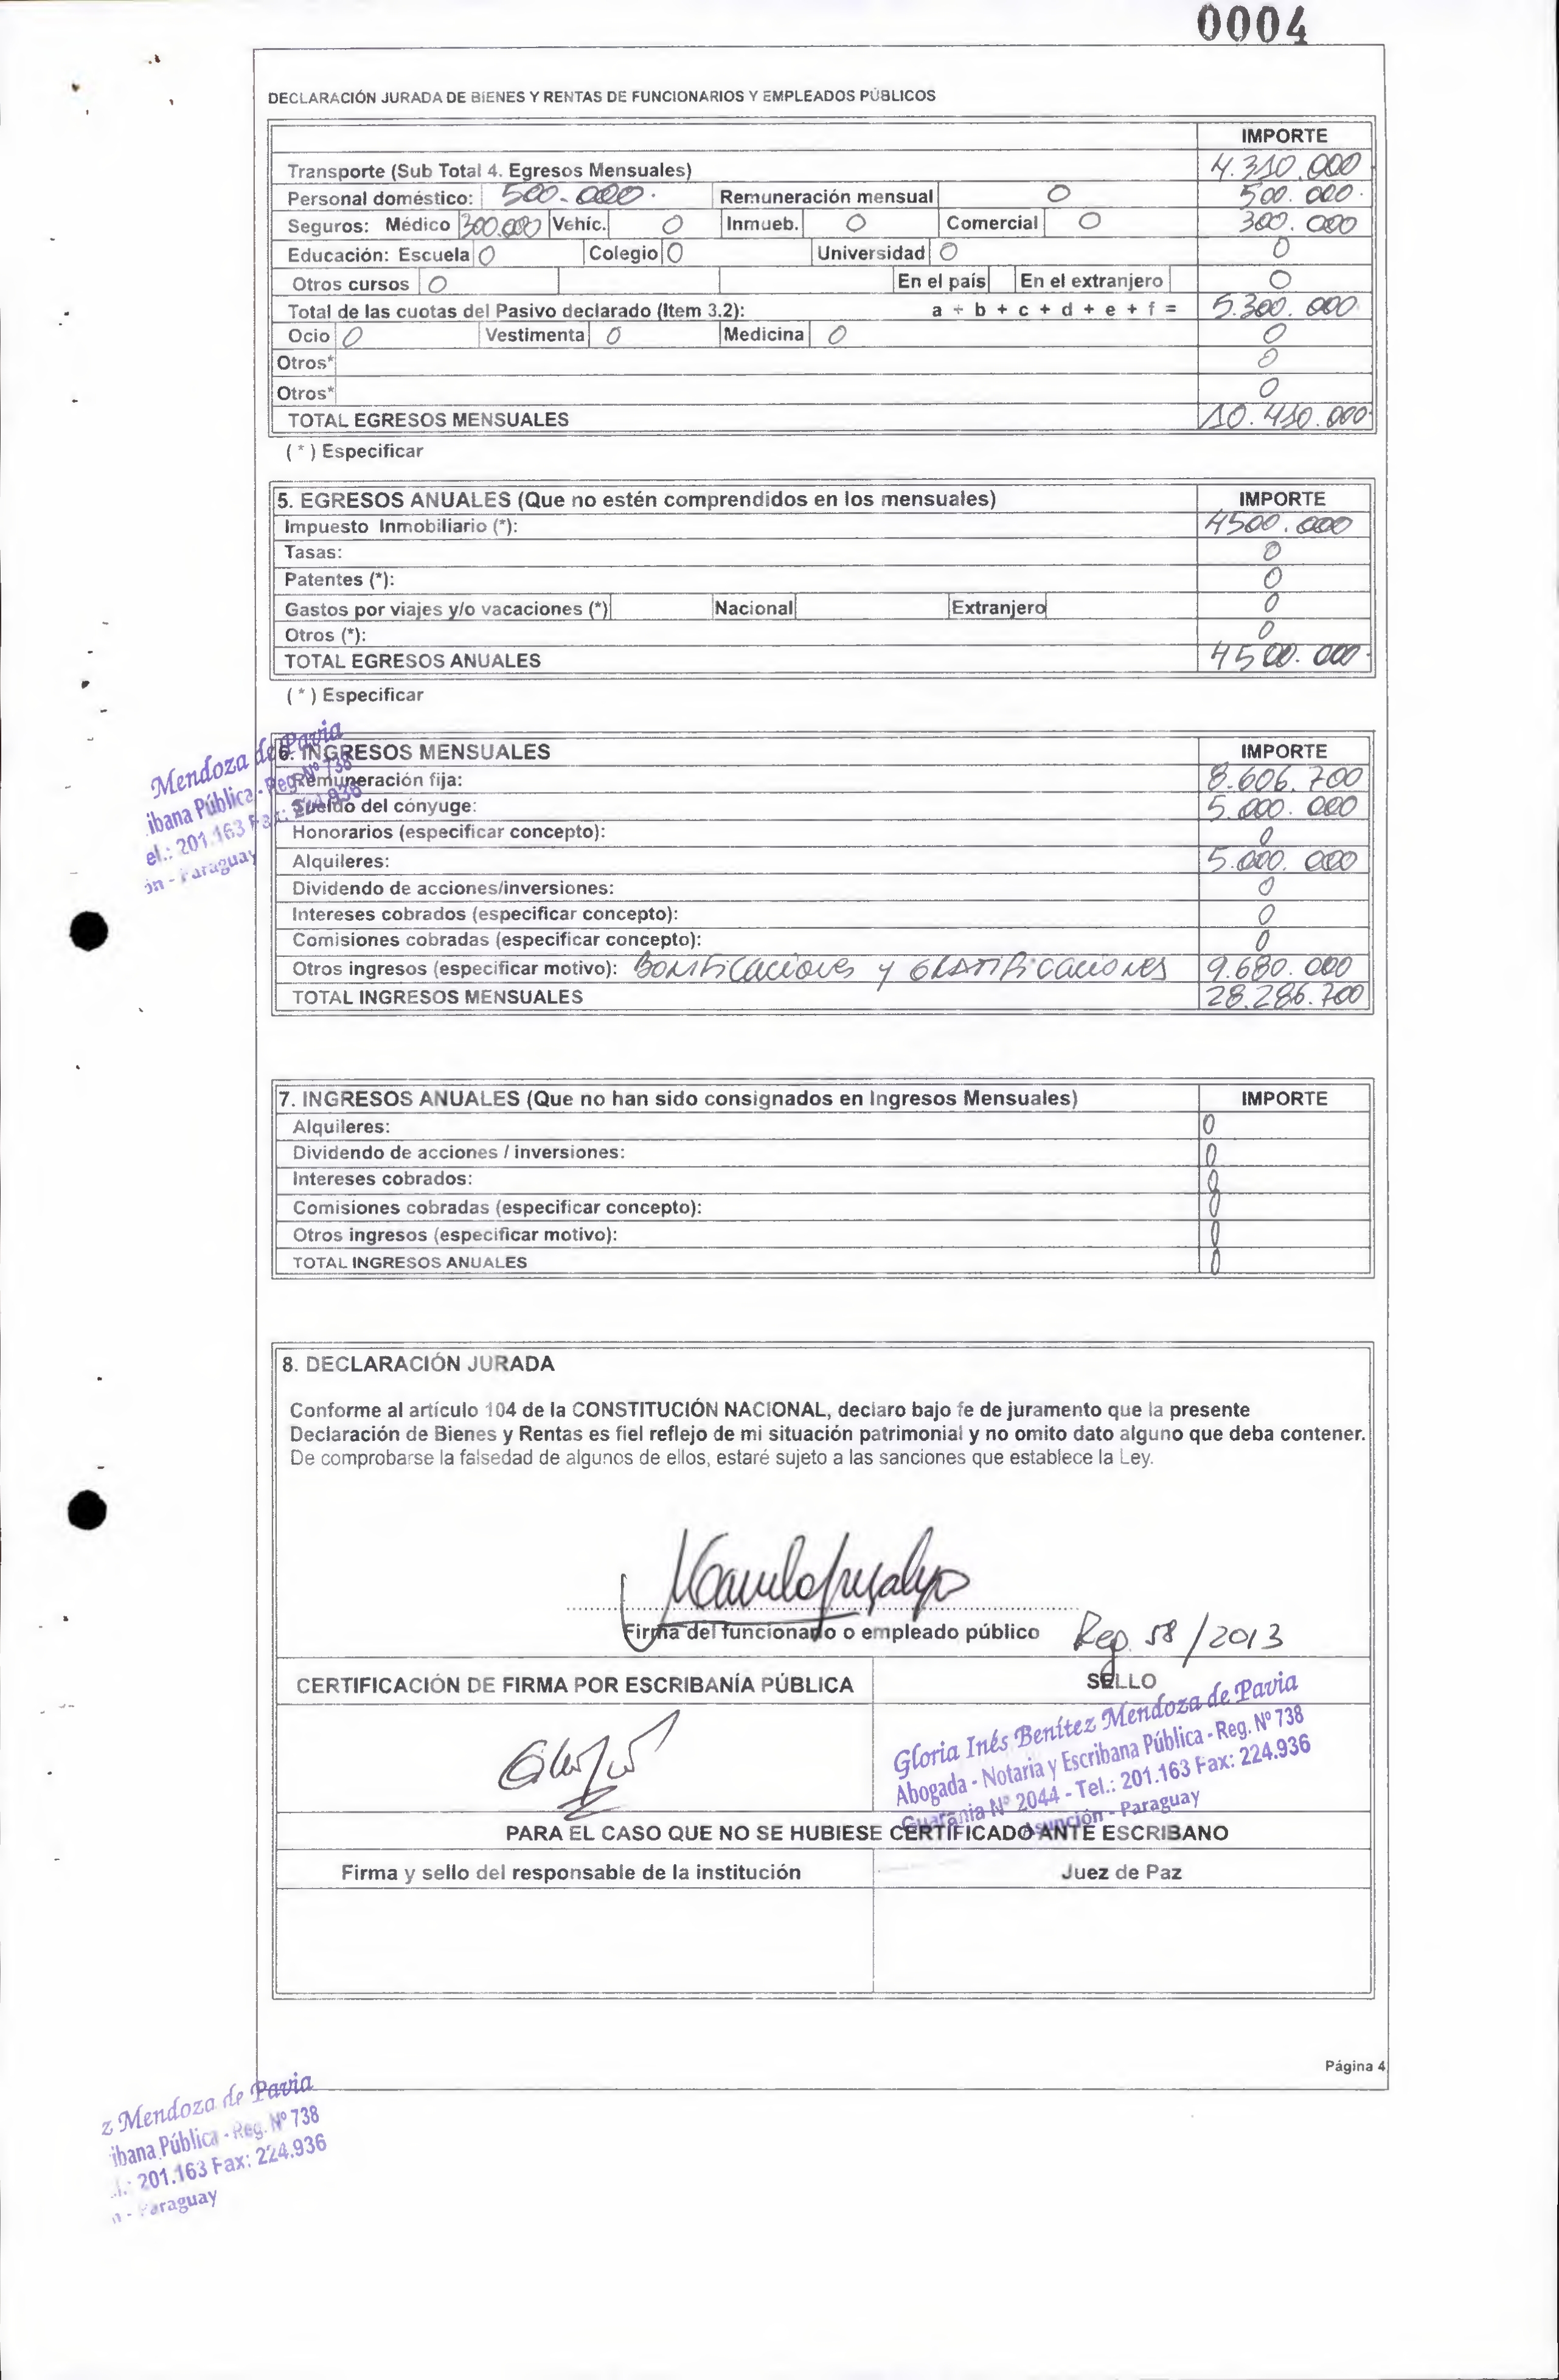 0004
DECLARACIÓN JURADA DE BIENES Y RENTAS DE FUNCIONARIOS Y EMPLEADOS PÚBLICOS
IMPORTE
Transporte (Sub Total 4. Egresos Mensuales) 4.310.000
Personal doméstico: 500.000. Remuneración mensual 0 500.000.
Seguros: Médico 300.000 Vehíc. 0 Inmueb. 0 Comercial 0 300.000
Educación: Escuela 0 Colegio 0 Universidad 0 0
Otros cursos 0 En el país En el extranjero 0
Total de las cuotas del Pasivo declarado (Item 3.2): a + b + c + d + e + f = 5.300.000.
Ocio 0 Vestimenta 0 Medicina 0 0
Otros* 0
Otros* 0
TOTAL EGRESOS MENSUALES 10.410.000.
( * ) Especificar
5. EGRESOS ANUALES (Que no estén comprendidos en los mensuales) IMPORTE
Impuesto Inmobiliario (*): 4500.000
Tasas: 0
Patentes (*): 0
Gastos por viajes y/o vacaciones (*) Nacional Extranjero 0
Otros (*): 0
TOTAL EGRESOS ANUALES 4500.000.
( * ) Especificar
Mendoza de Pavia
ibana Pública - Reg. Nº 738
el.: 201.163 Fax: 224.936
ón - Paraguay
6. INGRESOS MENSUALES IMPORTE
Remuneración fija: 8.606.700
Sueldo del cónyuge: 5.000.000
Honorarios (especificar concepto): 0
Alquileres: 5.000.000
Dividendo de acciones/inversiones: 0
Intereses cobrados (especificar concepto): 0
Comisiones cobradas (especificar concepto): 0
Otros ingresos (especificar motivo): Bonificaciones y Gratificaciones 9.680.000
TOTAL INGRESOS MENSUALES 28.286.700
7. INGRESOS ANUALES (Que no han sido consignados en Ingresos Mensuales) IMPORTE
Alquileres: 0
Dividendo de acciones / inversiones: 0
Intereses cobrados: 0
Comisiones cobradas (especificar concepto): 0
Otros ingresos (especificar motivo): 0
TOTAL INGRESOS ANUALES 0
8. DECLARACIÓN JURADA
Conforme al artículo 104 de la CONSTITUCIÓN NACIONAL, declaro bajo fe de juramento que la presente
Declaración de Bienes y Rentas es fiel reflejo de mi situación patrimonial y no omito dato alguno que deba contener.
De comprobarse la falsedad de algunos de ellos, estaré sujeto a las sanciones que establece la Ley.
Firma del funcionario o empleado público Reg. 58/2013
CERTIFICACIÓN DE FIRMA POR ESCRIBANÍA PÚBLICA SELLO
Gloria Inés Benítez Mendoza de Pavia
Abogada - Notaria y Escribana Pública - Reg. Nº 738
Guarania Nº 2044 - Tel.: 201.163 Fax: 224.936
Asunción - Paraguay
PARA EL CASO QUE NO SE HUBIESE CERTIFICADO ANTE ESCRIBANO
Firma y sello del responsable de la institución Juez de Paz
Página 4
z Mendoza de Pavia
ibana Pública - Reg. Nº 738
.: 201.163 Fax: 224.936
n - Paraguay